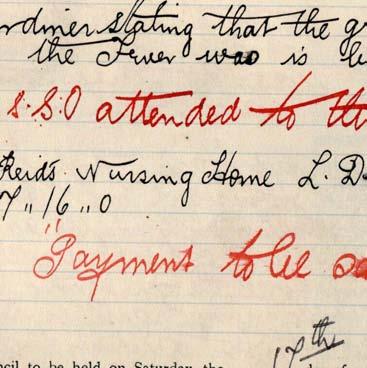 rdiner stating that the gr
the Fever was is b
S.S.O attended to th
Reid's Nursing Home L. D
7 " 16 " 0
"Payment to be sa
17th
ncil to be held on Saturday the